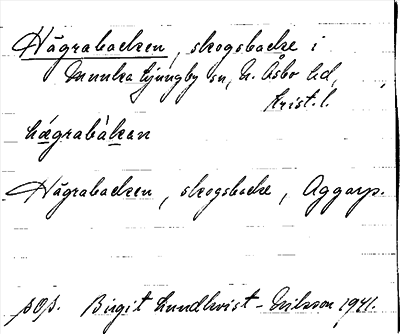 Hägrabacken, skogsbacke i
Munka Ljungby sn, N. Åsbo hd,
Krist. l.
hägrabàkan
Hägrabacken, skogsbacke, Aggarp.
Birgit Lundkvist-Nilsson 1941.